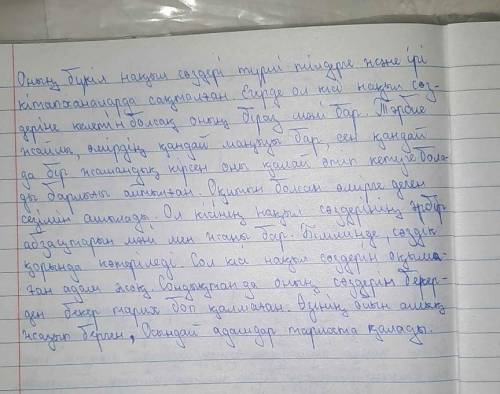 Оның бүкіл нақыл сөздері түрлі тілдерге және ірі
кітапханаларда сақталған. Егерде ол кісі нақыл сөз-
деріне келетін болсақ оның біраз мәні бар. Тәрбие
жайлы, өмірдің қандай маңызы бар, сен қандай
да бір жамандыққа кірсең оны қалай өтіп кетуге бола-
ды барлығы айтылған. Оқыған болсаң өмірге деген
сезімің ашылады. Ол кісінің нақыл сөздерінің әрбір
абзацтарын мәні мен жаны бар. Білімінде, сөздік
қорында көтеріледі. Сол кісі нақыл сөздерін оқыма-
ған адам жоқ. Сондықтан да оның сөздерін бекер-
ден бекер тарих боп қалмаған. Өзінің ойын ашық
жазып берген, Осындай адамдар тарихта қалады.